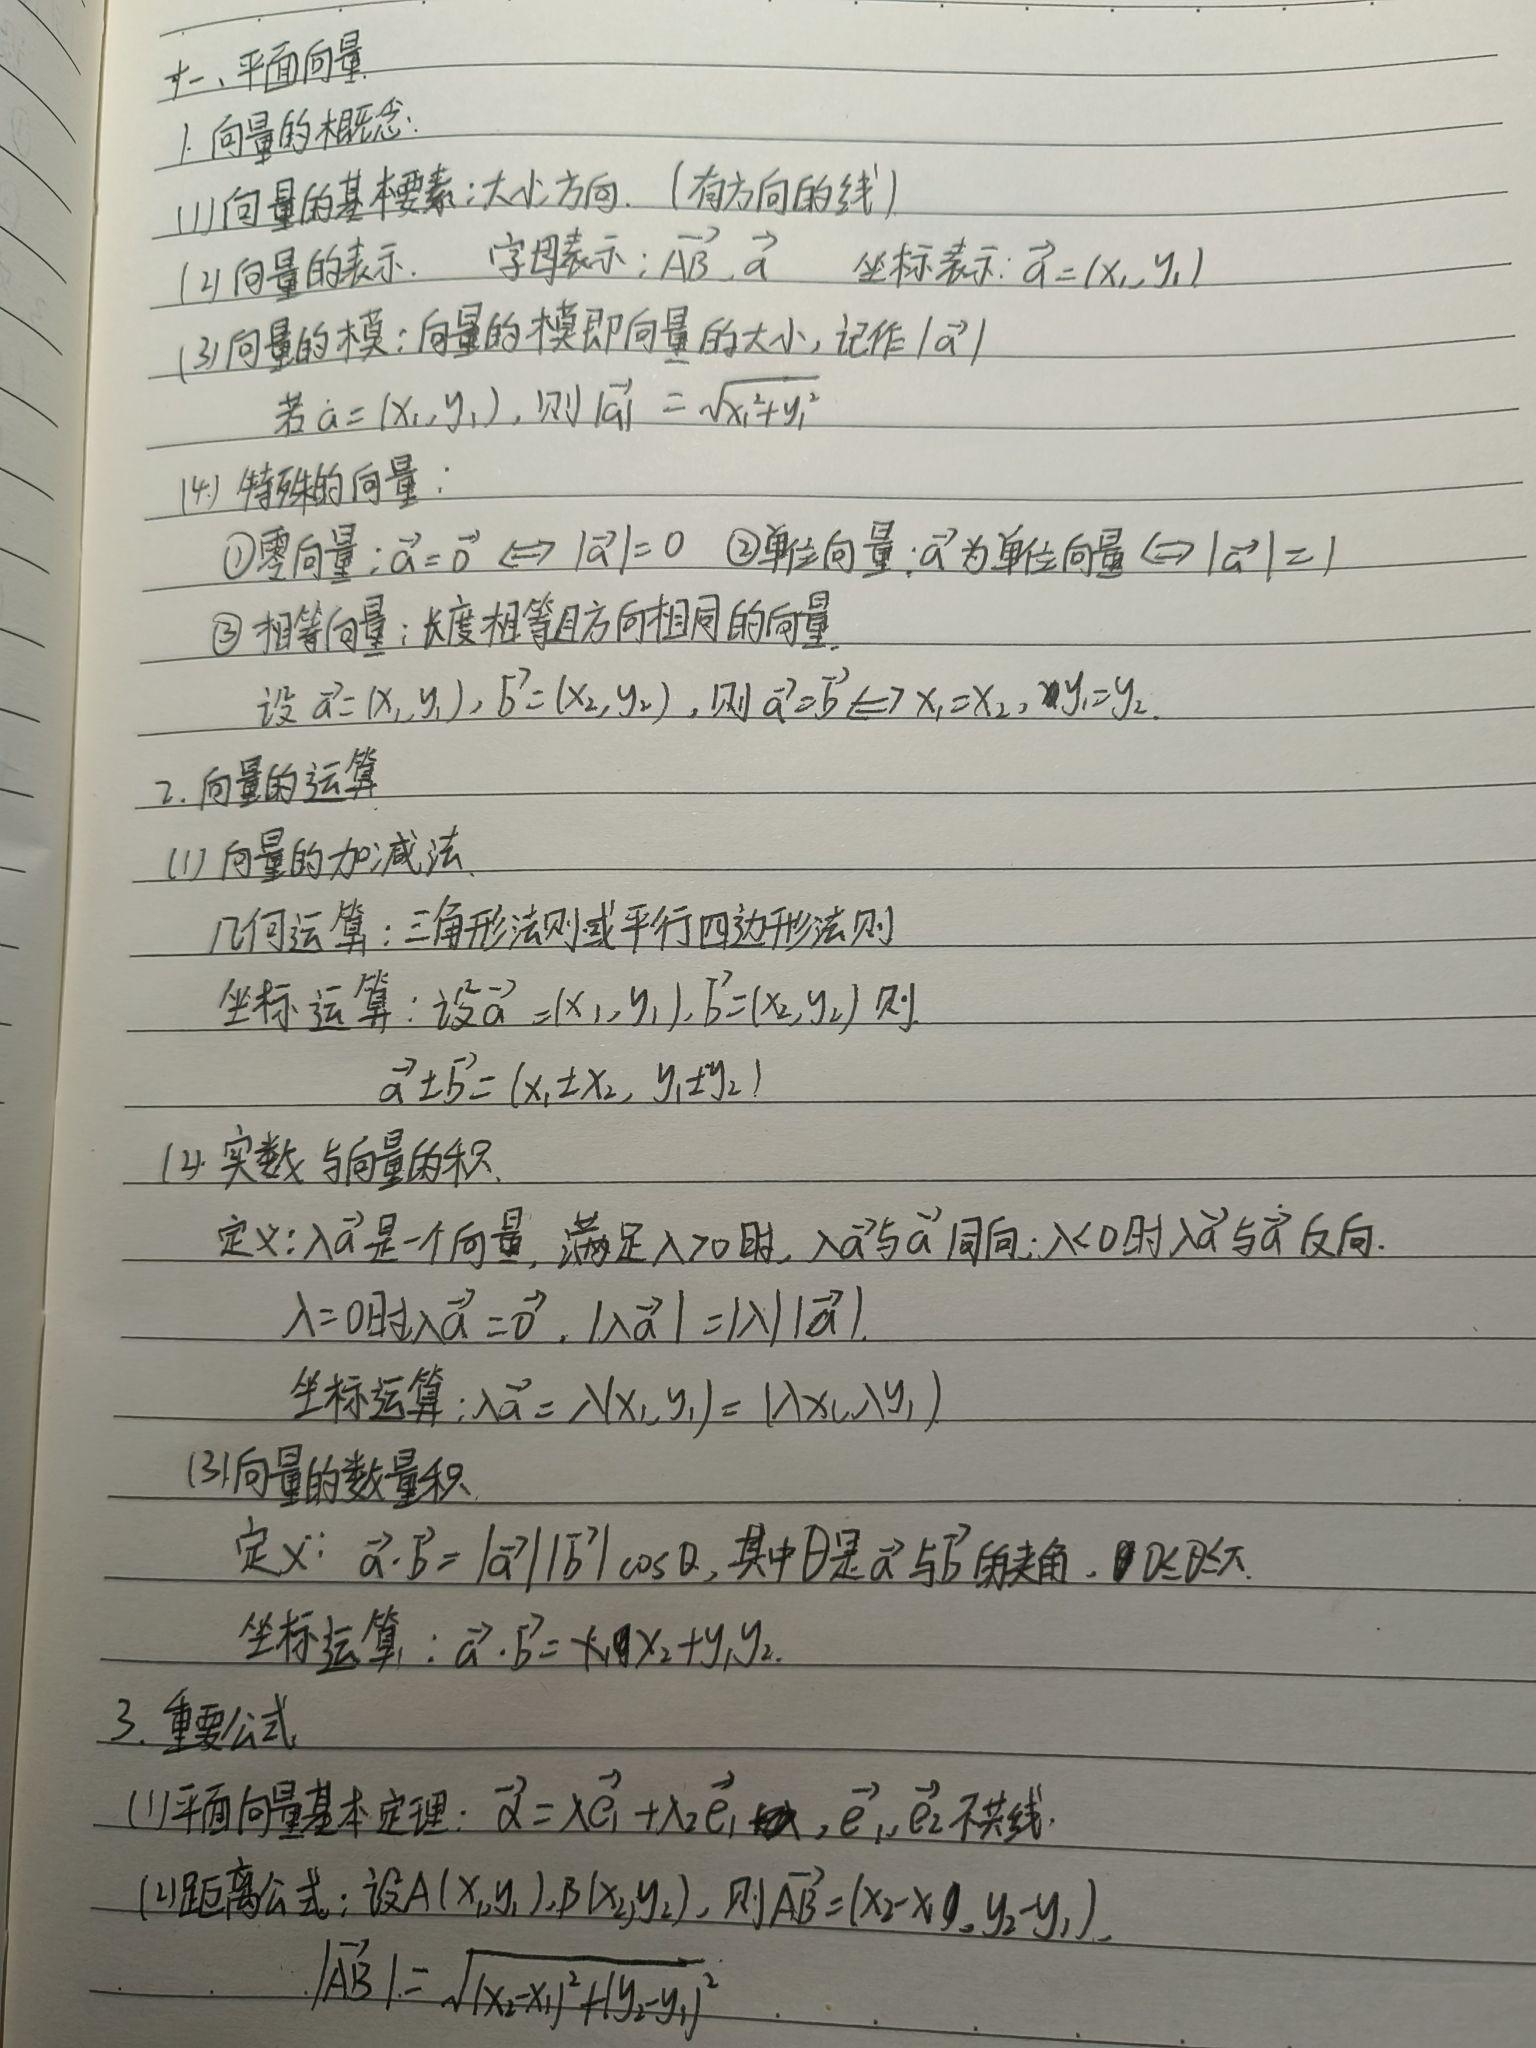 十一、平面向量.
1. 向量的概念:
(1)向量的基本要素:大小方向.(有方向的线)
(2)向量的表示. 字母表示:AB⃗、a⃗ 坐标表示:a⃗=(x₁,y₁)
(3)向量的模:向量的模即向量的大小,记作|a⃗|
若a=(x₁,y₁),则|a⃗|=√(x₁²+y₁²)
(4)特殊的向量:
①零向量:a⃗=0⃗⇔|a⃗|=0 ②单位向量:a⃗为单位向量⇔|a⃗|=1
③相等向量:长度相等且方向相同的向量.
设a⃗=(x₁,y₁),b⃗=(x₂,y₂),则a⃗=b⃗⇔x₁=x₂,y₁=y₂.
2.向量的运算
(1)向量的加减法.
几何运算:三角形法则或平行四边形法则
坐标运算:设a⃗=(x₁,y₁),b⃗=(x₂,y₂)则
a⃗±b⃗=(x₁±x₂, y₁±y₂)
(2)实数与向量的积.
定义:λa⃗是一个向量,满足λ>0时,λa⃗与a⃗同向;λ<0时λa⃗与a⃗反向.
λ=0时λa⃗=0⃗,|λa⃗|=|λ||a⃗|.
坐标运算:λa⃗=λ(x₁,y₁)=(λx₁,λy₁)
(3)向量的数量积.
定义:a⃗·b⃗=|a⃗||b⃗|cosθ,其中θ是a⃗与b⃗的夹角.0≤θ≤π.
坐标运算:a⃗·b⃗=x₁x₂+y₁y₂.
3.重要公式.
(1)平面向量基本定理:a⃗=λe⃗₁+λ₂e⃗₁,e⃗₁,e⃗₂不共线.
(2)距离公式:设A(x₁,y₁),B(x₂,y₂),则AB⃗=(x₂-x₁,y₂-y₁),
|AB⃗|=√((x₂-x₁)²+(y₂-y₁)²)